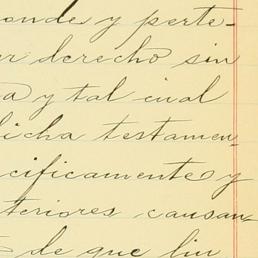 onde y perte-
er derecho sin
a y tal cual
dicha testamen-
cificamente y
teriores causan-
de que lin